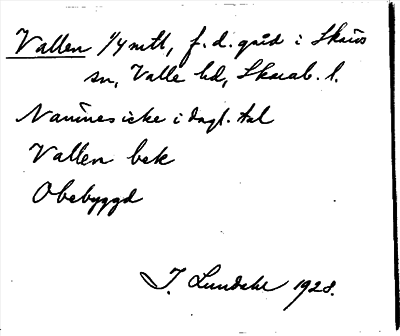 Vallen 1/4 mtl, f. d. gård i Skärvs
sn, Valle hd, Skarab. l.
Namnes icke i dagl. tal
Vallen bek
Obebyggd
I. Lundahl 1928.